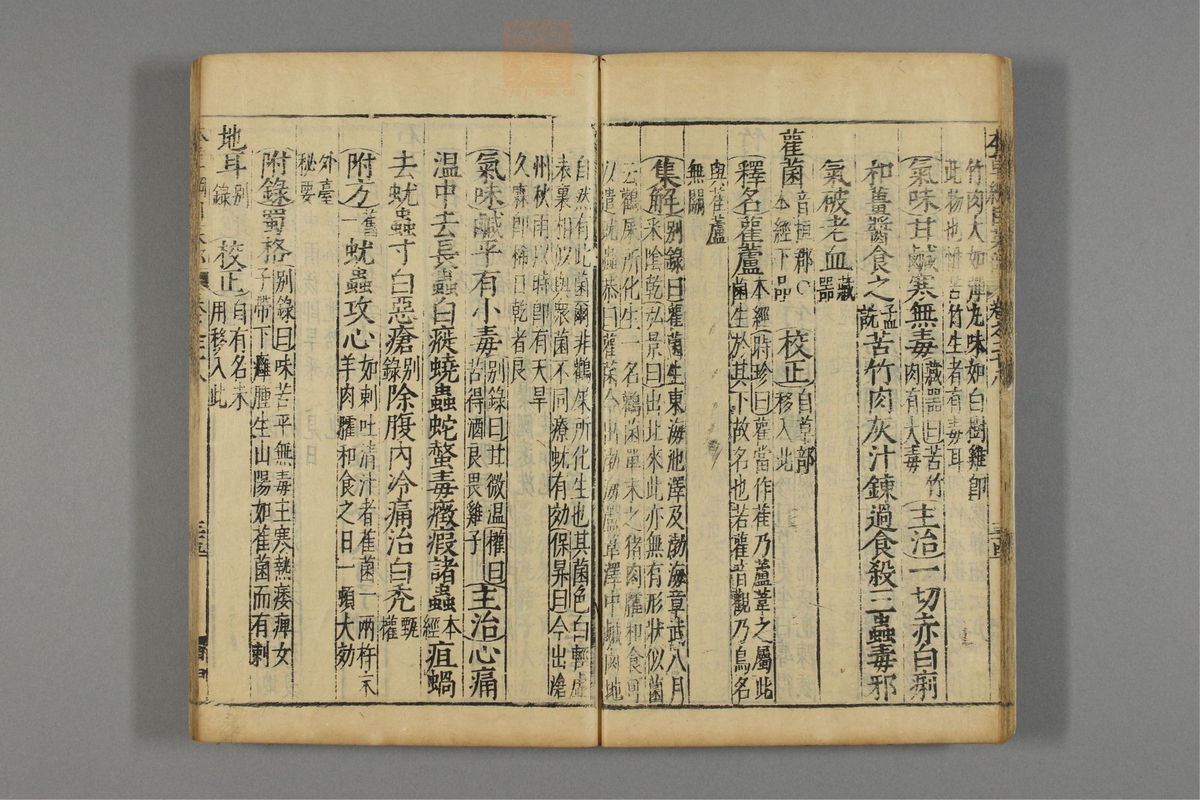 竹肉人如彈丸味如白樹雞即
此物也惟苦竹生者有毒耳
氣味甘鹹寒無毒藏器曰苦竹
肉有大毒主治一切赤白痢
和薑醬食之孟
詵苦竹肉灰汁鍊過食殺三蟲毒邪
氣破老血藏
器
雚菌音桓郡○
本經下品校正自草部
移入此
釋名雚蘆本經時珍曰雚當作萑乃蘆葦之屬此
菌生於其下故名也若雚音觀乃鳥名
與萑蘆
無關
集解別錄曰雚菌生東海池澤及渤海章武八月
采陰乾弘景曰出北來此亦無有形狀似菌
云鸛屎所化生一名鸛菌單末之豬肉臛和食可
以遣蚘蟲恭曰雚菌今出渤海蘆葦澤中鹹鹵地
自然有此菌爾非鸛屎所化生也其菌色白輕虛
表裏相似與眾菌不同療蚘有效保昇曰今出滄
州秋雨以時即有天旱
久霖即稀日乾者良
氣味鹹平有小毒別錄曰甘微溫權曰
苦得酒良畏雞子主治心痛
溫中去長蟲白瘲蟯蟲蛇螫毒癥瘕諸蟲本
經疽蝸
去蚘蟲寸白惡瘡別
錄除腹內冷痛治白禿甄
權
附方舊
一蚘蟲攻心如刺吐清汁者萑菌一兩杵末
羊肉臛和食之日一頓大効
外臺
秘要
附錄蜀格別錄曰味苦平無毒主寒熱痿痺女
子帶下癰腫生山陽如雚菌而有刺
地耳別
錄校正自有名未
用移入此